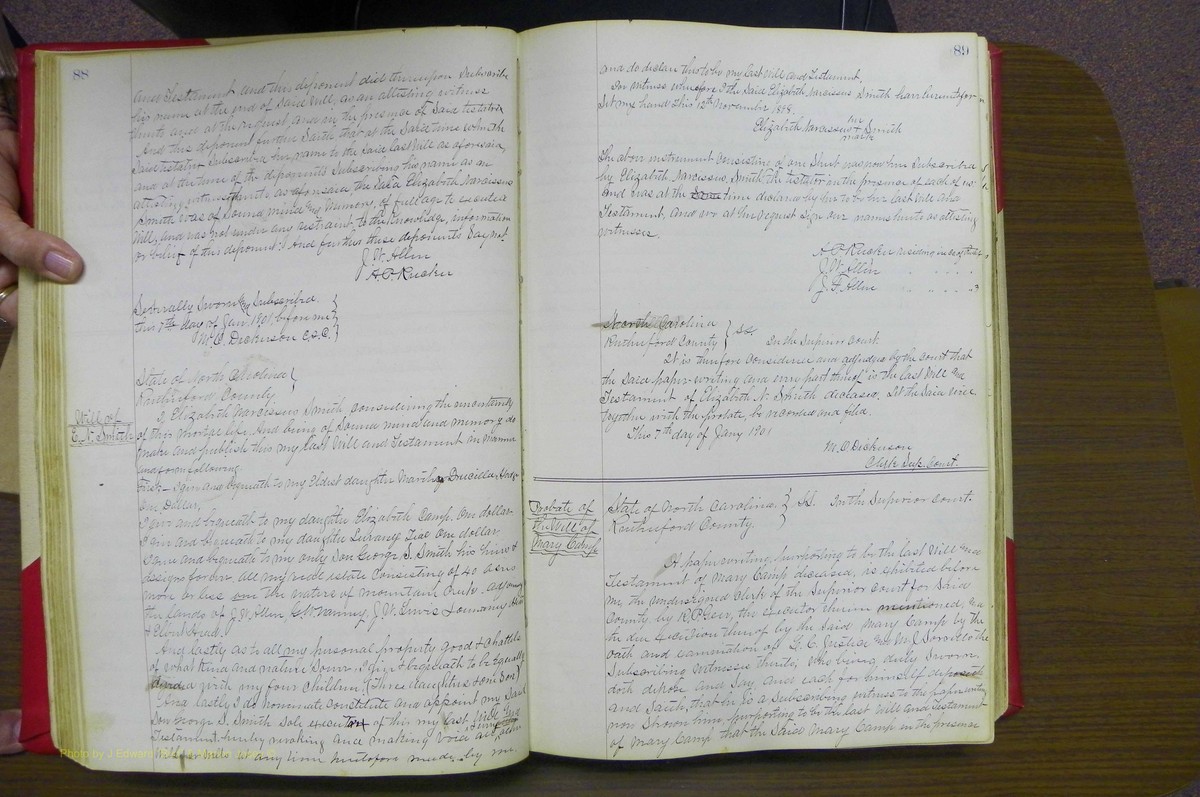 88
and Testament and this deponent did thereupon Subscribe
his name at the end of Said Will, as an attesting witness
thereto and at the request and in the presence of Said testator
And this deponent further Saith that at the Said time when the
Said testator Subscribed her name to the Said last Will as aforesaid
and at the time of the deponents Subscribing his name as an
attesting witness thereto, as aforesaid the Said Elizabeth Narcissus
Smith was of Sound mind and Memory, of full age to execute a
Will, and was not under any restraint to the knowledge, information
or belief of this deponent: And further these deponents Say not
J. W. Allen
A. P. Rucker
Severally Sworn and Subscribed
this 7th day of Jan. 1901, before me
M. O. Dickerson C.S.C.
State of North Carolina
Rutherford County
Will of
E. N. Smith
I Elizabeth Narcissus Smith considering the uncertainty
of this mortal life. And being of Sound mind and memory do
make and publish this my last Will and Testament in manner
and form following
First - I give and bequeath to my Eldest daughter Martha Drucilla
One Dollar,
I give and bequeath to my daughter Elizabeth Camp. One dollar
I give and bequeath to my daughter Luraney One dollar
I give and bequeath to my only Son George S. Smith his heirs &
assigns forever, all my real estate Consisting of 40 acres
more or less on the waters of mountain Creek. adjoining
the lands of J. W. Allen, Nanney, J. W.
And lastly as to all my personal property goods & Chattels
of what kind and nature Soever. I give & bequeath to be equally
divided with my four Children. (Three daughters & one Son)
And lastly I do nominate constitute and appoint my Said
Son George S. Smith Sole executor of this my last Will and
Testament. hereby making and making void all other
Wills at any time heretofore made by me
89
and do declare this to be my last Will and Testament,
In Witness whereof I the Said Elizabeth Narcissus Smith have hereunto
Set my hand this 12th November 1898.
Elizabeth Narcissus her X mark Smith
The above instrument consisting of one Sheet was now here Subscribed
by Elizabeth Narcissus Smith the testator in the presence of each of us
and was at the Same time declared by her to be her last Will and
Testament, and we at her request sign our names hereto as attesting
witnesses.
A. P. Rucker residing in
J. W. Allen " " " "
J. F. Allen " " " "
North Carolina
Rutherford County } SS. In the Superior Court.
It is therefore considered and adjudged by the court that
the Said paper writing and every part thereof is the last Will and
Testament of Elizabeth N. Smith deceased. Let the Said Will
together with the probate be recorded and filed.
This 7th day of Jany 1901
M. O. Dickerson
Clerk Sup. Court.
Probate of
the Will of
Mary Camp
State of North Carolina } SS. In the Superior Court.
Rutherford County.
A paper writing purporting to be the last Will and
Testament of Mary Camp deceased, is exhibited before
me, the undersigned Clerk of the Superior Court for Said
County by R. P. Geer, the executor therein mentioned, and
the due execution thereof by the Said Mary Camp by the
oath and examination of G. C. Justice and M. J. the
Subscribing witnesses thereto; who being duly Sworn
doth depose and Say and each for himself deposeth
and Saith, that he is a Subscribing witness to the paper writing
now Shown him, purporting to be the last Will and Testament
of Mary Camp that the Said Mary Camp in the presence